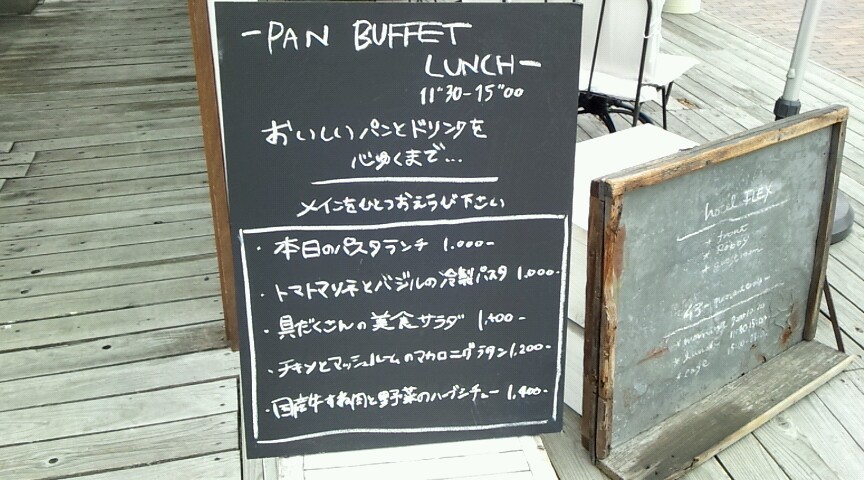 -PAN BUFFET
LUNCH-
11"30-15"00
おいしいパンとドリンクを
心ゆくまで...
メインをひとつおえらび下さい
・本日のパスタランチ 1.000-
・トマトマリネとバジルの冷製パスタ 1.000-
・具だくさんの美食サラダ 1,400-
・チキンとマッシュルームのマカロニグラタン 1,200-
・国産牛すね肉と野菜のハーブシチュー 1,400-
hotel FLEX
* front
* lobby